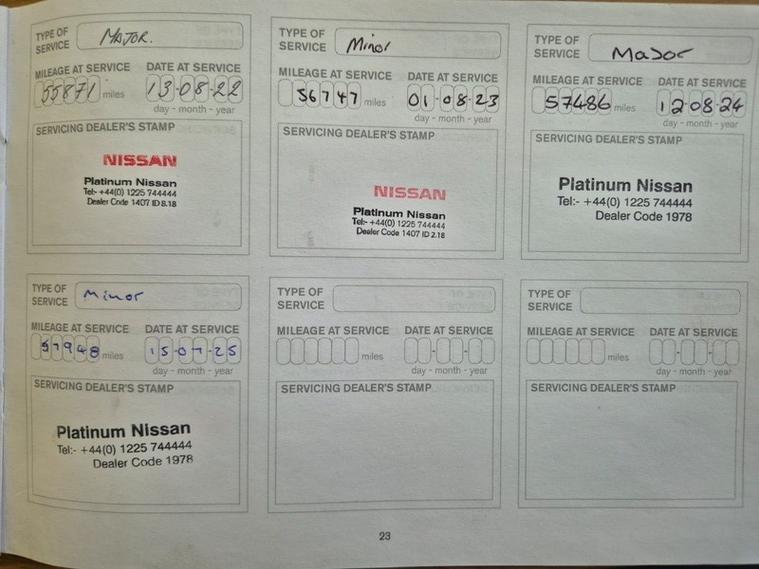 TYPE OF
SERVICE
MAJOR.
MILEAGE AT SERVICE
DATE AT SERVICE
55871 miles
13-08-22
day - month - year
SERVICING DEALER'S STAMP
NISSAN
Platinum Nissan
Tel:- +44(0) 1225 744444
Dealer Code 1407 ID 8.18
TYPE OF
SERVICE
Minor
MILEAGE AT SERVICE
DATE AT SERVICE
56747 miles
01-08-23
day - month - year
SERVICING DEALER'S STAMP
NISSAN
Platinum Nissan
Tel:- +44(0) 1225 744444
Dealer Code 1407 ID 2.18
TYPE OF
SERVICE
Major
MILEAGE AT SERVICE
DATE AT SERVICE
57486 miles
12-08-24
day - month - year
SERVICING DEALER'S STAMP
Platinum Nissan
Tel:- +44(0) 1225 744444
Dealer Code 1978
TYPE OF
SERVICE
Minor
MILEAGE AT SERVICE
DATE AT SERVICE
57948 miles
15-07-25
day - month - year
SERVICING DEALER'S STAMP
Platinum Nissan
Tel:- +44(0) 1225 744444
Dealer Code 1978
TYPE OF
SERVICE
MILEAGE AT SERVICE
DATE AT SERVICE
miles
day - month - year
SERVICING DEALER'S STAMP
TYPE OF
SERVICE
MILEAGE AT SERVICE
DATE AT SERVICE
miles
day - month - year
SERVICING DEALER'S STAMP
23